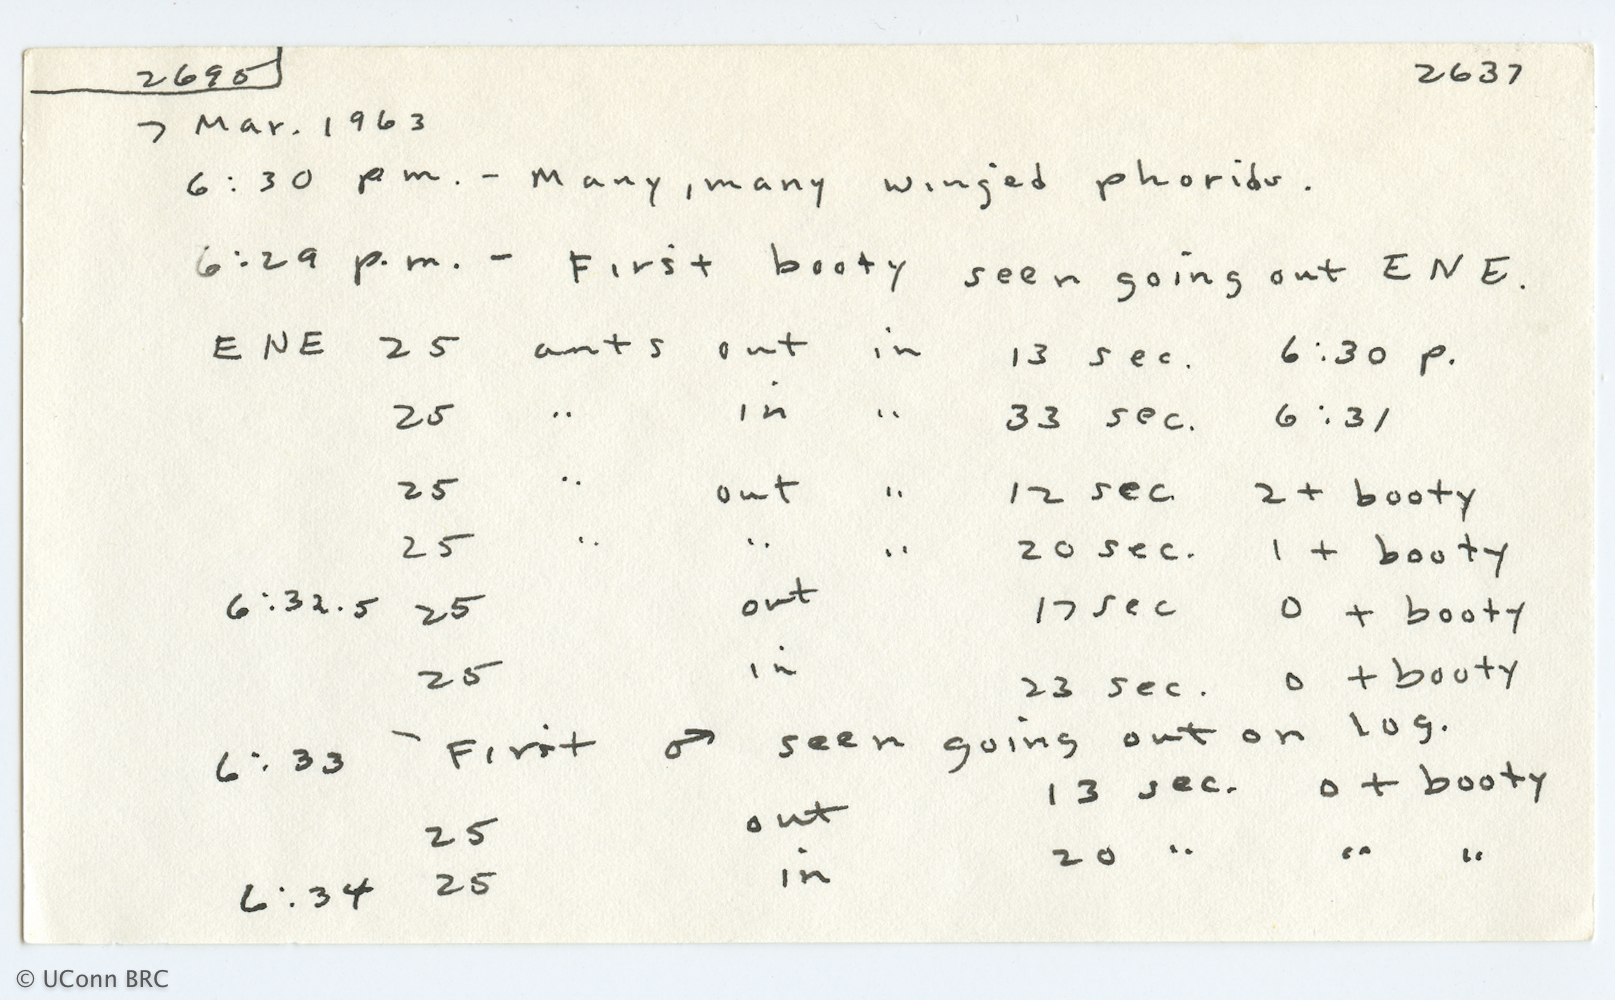 2690 2637
7 Mar. 1963
6:30 p.m. - Many, many winged phorids.
6:29 p.m. - First booty seen going out ENE.
ENE 25 ants out in 13 sec. 6:30 p.
25 " in " 33 sec. 6:31
25 " out " 12 sec. 2 + booty
25 " " " 20 sec. 1 + booty
6:32.5 25 out 17 sec 0 + booty
25 in 23 sec. 0 + booty
6:33 - First ♂ seen going out on log.
25 out 13 sec. 0 + booty
6:34 25 in 20 " " "
© UConn BRC